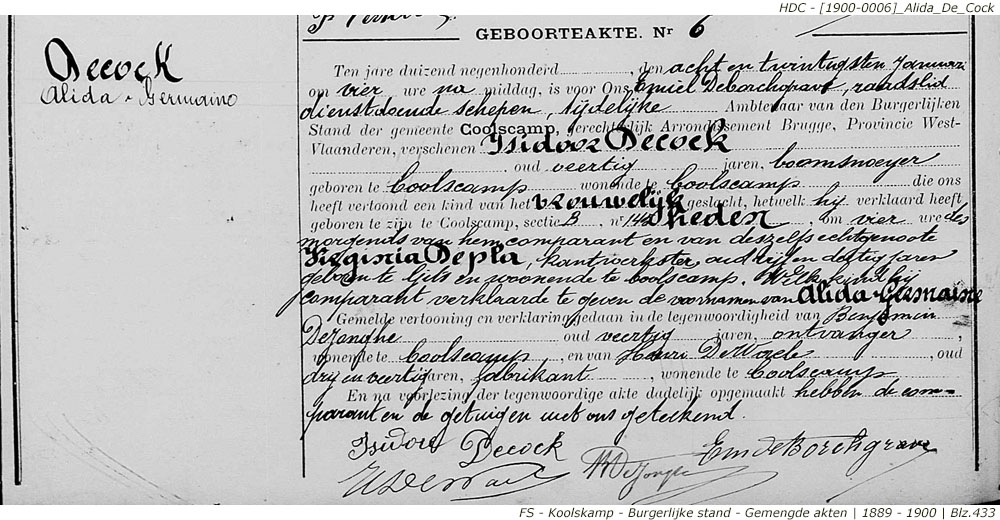 HDC - [1900-0006]_Alida_De_Cock
Decock
Alida-Germaine
GEBOORTEAKTE. Nr 6
Ten jare duizend negenhonderd, den acht en twintigsten Januari
om vier ure na middag, is voor Ons, Emiel Deborchgrave, raadslid
dienstdoende schepen, tijdelijke Ambtenaar van den Burgerlijken
Stand der gemeente Coolscamp, gerechtelijk Arrondissement Brugge, Provincie West-
Vlaanderen, verschenen Isidoor Decock
oud veertig jaren, boomsnoeyer
geboren te Coolscamp wonende te Coolscamp die ons
heeft vertoond een kind van het vrouwelijk geslacht, hetwelk hij verklaard heeft
geboren te zijn te Coolscamp, sectie B, nr 142 heden, om vier ure des
morgends van hem comparant en van deszelfs echtgenoote
Virginia Depla, kantwerkster, oud drij en dertig jaren
geboren te en woonende te Coolscamp. Welk kind hij
comparant verklaarde te geven de voornamen van Alida-Germaine
Gemelde vertooning en verklaring gedaan in de tegenwoordigheid van Benjamin
DeJonghe oud veertig jaren, ontvanger,
wonende te Coolscamp, en van Henri DeWaele, oud
drij en veertig jaren, fabrikant, wonende te Coolscamp
En na voorlezing der tegenwoordige akte dadelijk opgemaakt hebben de com-
parant en de getuigen met ons geteekend.
Isidoor Decock
Em deBorchgrave
FS - Koolskamp - Burgerlijke stand - Gemengde akten | 1889 - 1900 | Blz.433